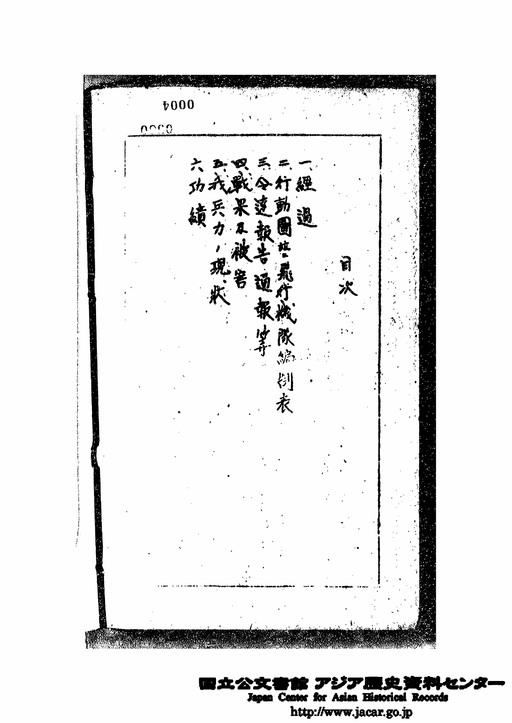 0004
目次
一、經過
二、行動圖並飛行機隊編制表
三、令達報告通報等
四、戰果及被害
五、我兵力ノ現狀
六、功績
国立公文書館 アジア歴史資料センター
Japan Center for Asian Historical Records
http://www.jacar.go.jp